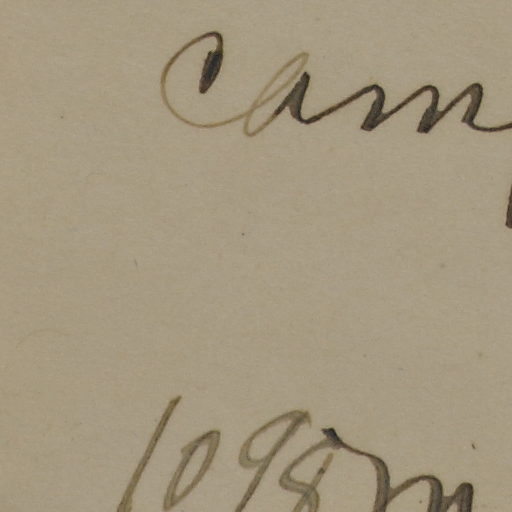 cam
1098 m